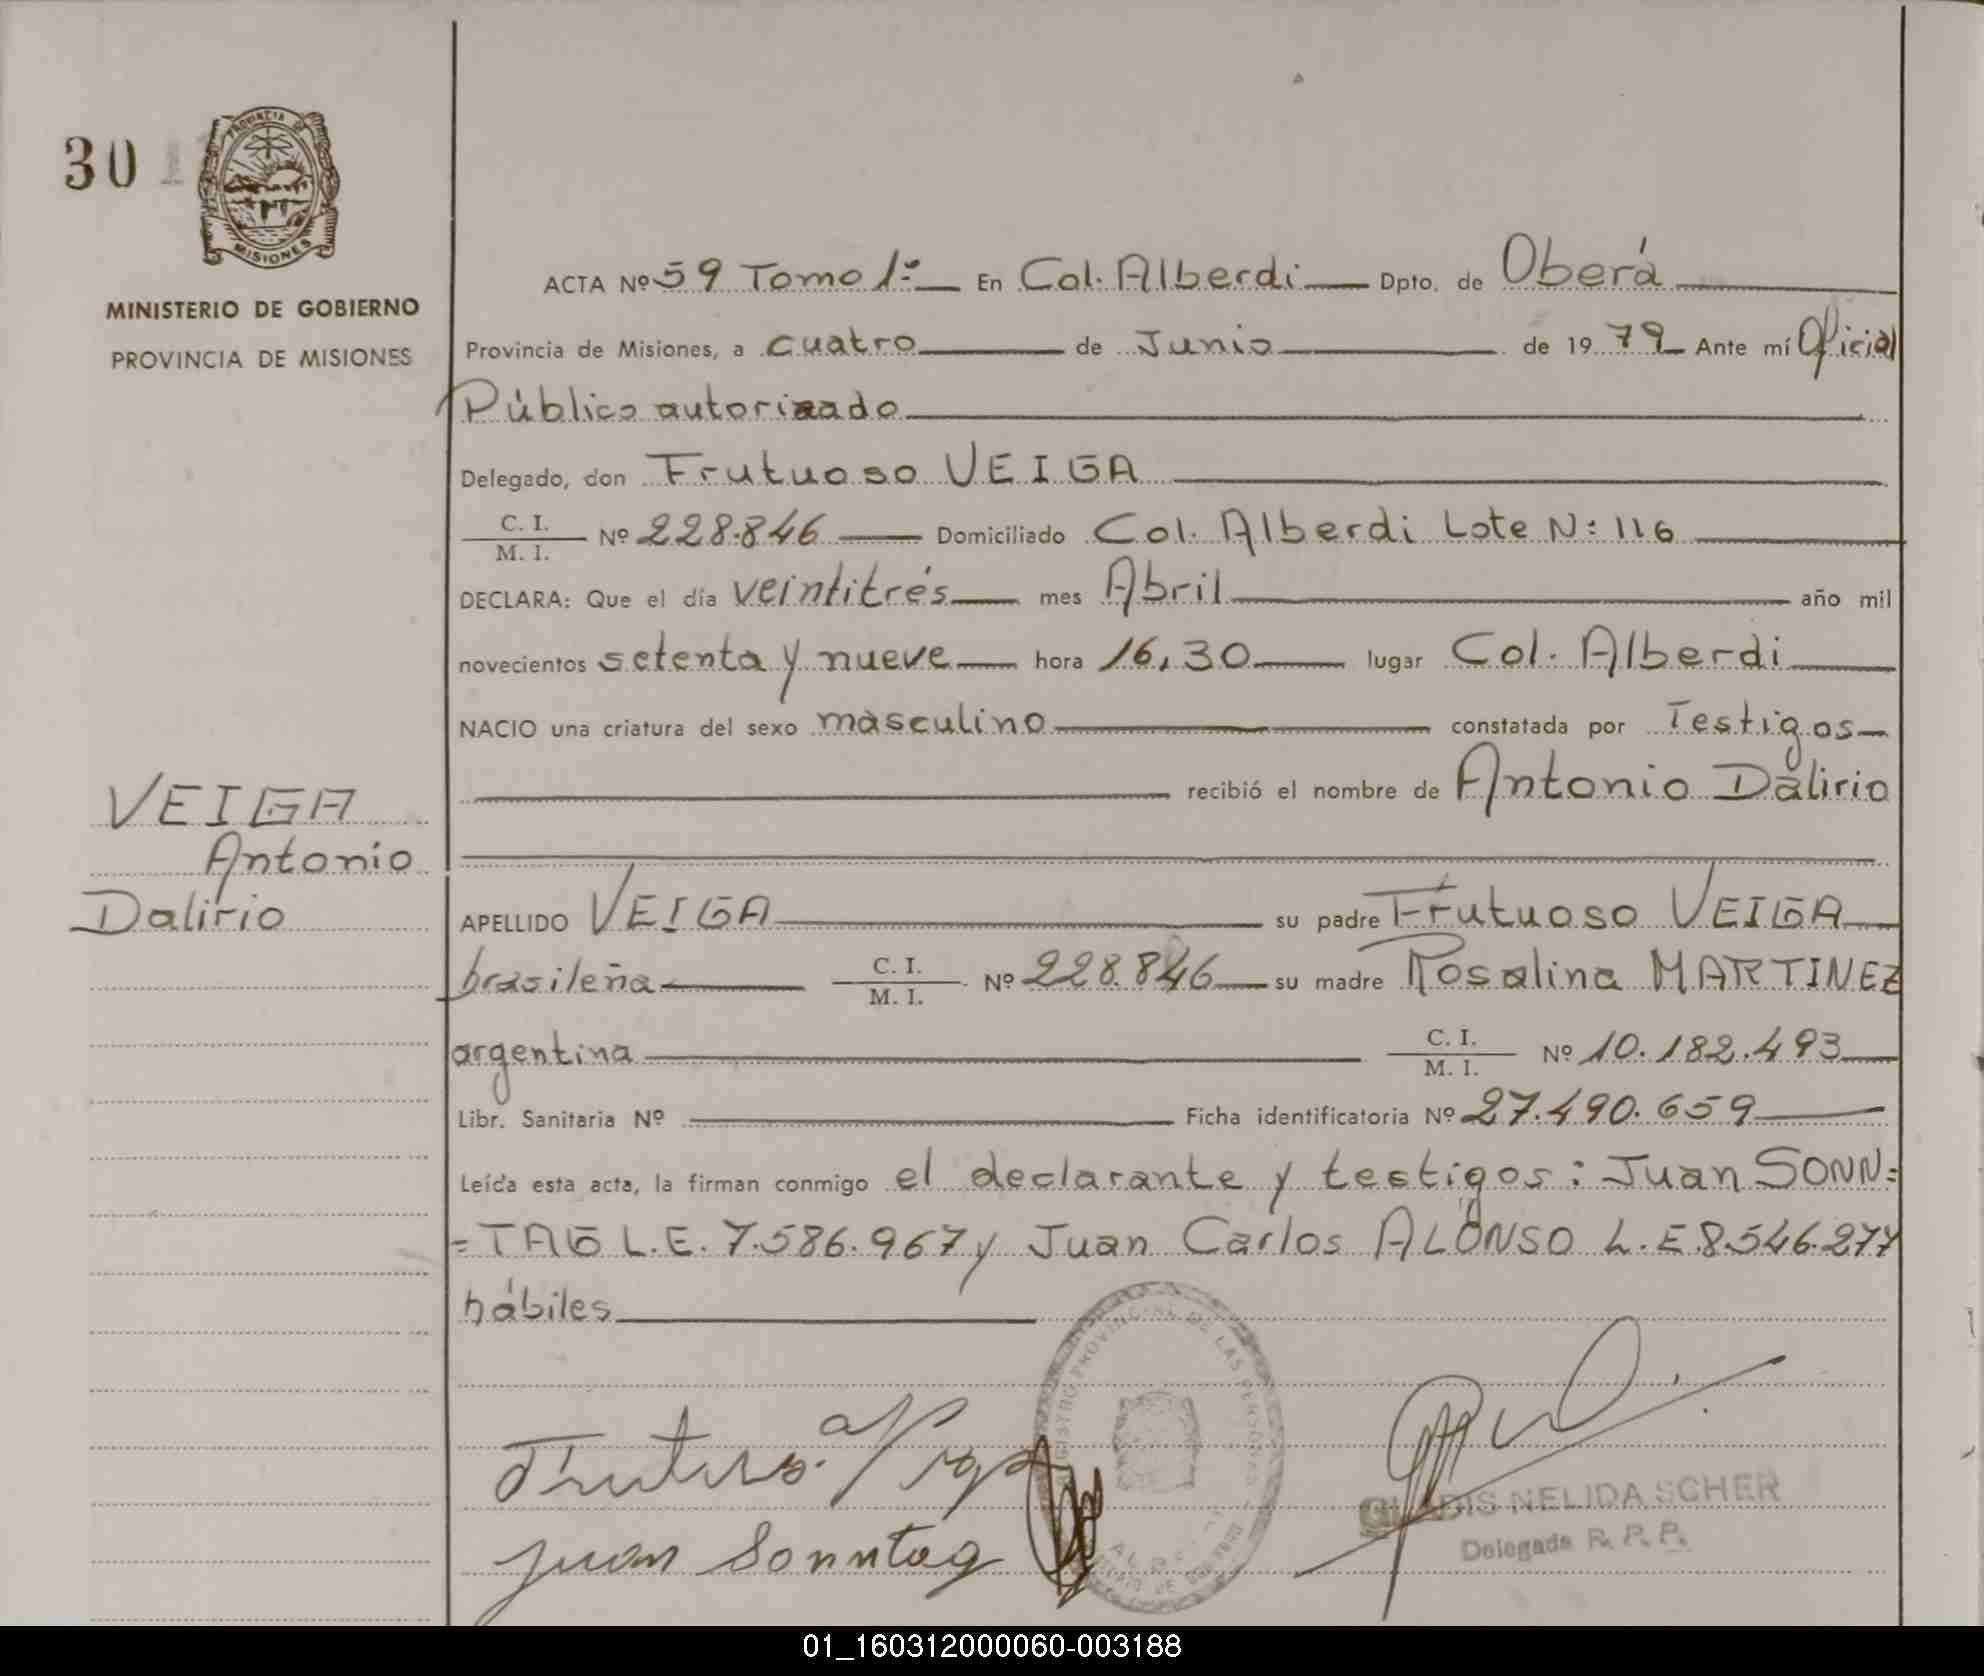 30
PROVINCIA DE
MISIONES
MINISTERIO DE GOBIERNO
PROVINCIA DE MISIONES
ACTA Nº 59 Tomo 1º En Col. Alberdi Dpto. de Oberá
Provincia de Misiones, a cuatro de Junio de 1979 Ante mí Oficial
Público autorizado
Delegado, don Frutuoso VEIGA
C. I.
M. I. Nº 228.846 Domiciliado Col. Alberdi Lote N: 116
DECLARA: Que el día veintitrés mes Abril año mil
novecientos setenta y nueve hora 16,30 lugar Col. Alberdi
NACIO una criatura del sexo masculino constatada por Testigos
recibió el nombre de Antonio Dalirio
VEIGA
Antonio
Dalirio
APELLIDO VEIGA su padre Frutuoso VEIGA
brasileña C. I.
M. I. Nº 228.846 su madre Rosalina MARTINEZ
argentina C. I.
M. I. Nº 10.182.493
Libr. Sanitaria Nº Ficha identificatoria Nº 27.490.659
Leída esta acta, la firman conmigo el declarante y testigos: Juan SONN=
=TAG L.E. 7.586.967 y Juan Carlos ALONSO L.E 8.546.277
hábiles
REGISTRO PROVINCIAL DE LAS PERSONAS
Juan Sonntag
GLADIS NELIDA SCHER
Delegada R. P. P.
01_160312000060-003188